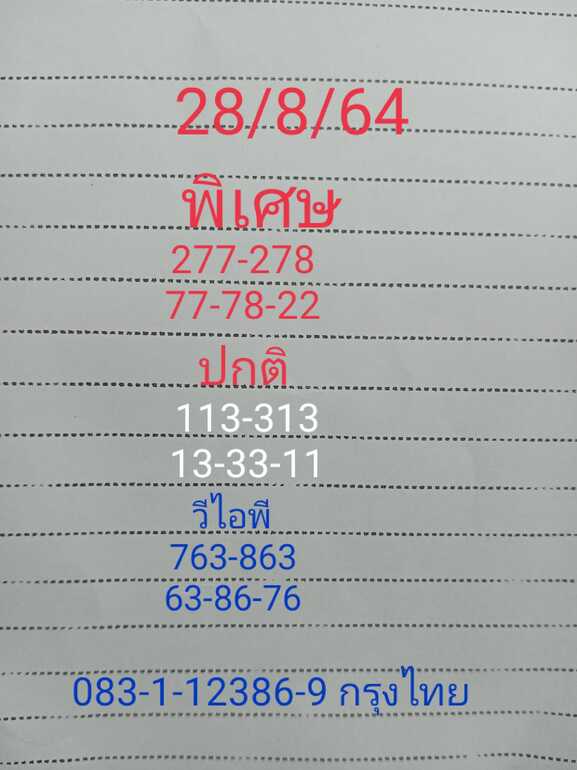 28/8/64
พิเศษ
277-278
77-78-22
ปกติ
113-313
13-33-11
วีไอพี
763-863
63-86-76
083-1-12386-9 กรุงไทย